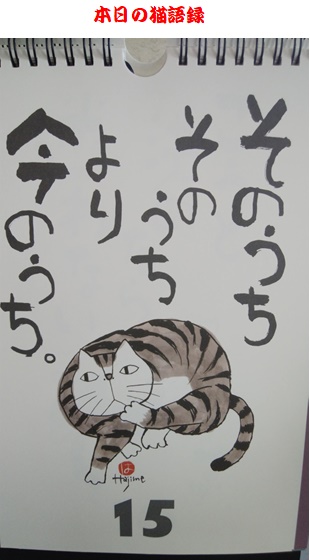 本日の猫語録
そのうち
その
うち
より
今のうち。
は
Hajime
15